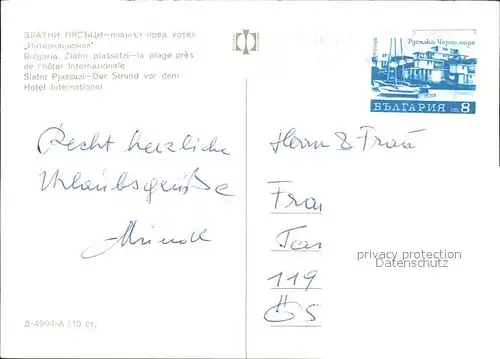 ЗЛАТНИ ПЯСЪЦИ—плажът пред хотел
„Интернационал"
Bulgaria. Zlatni piassatzi—la plage près
de l'hôtel Internationale
Slatni Pjassazi—Der Strand vor dem
Hotel International
Русалка Черно море
поща
БЪЛГАРИЯ ст. 8
Recht herzliche
Urlaubsgrüße
Herrn & Frau
Frau
119
privacy protection
Datenschutz
Д-4994-А / 10 ст.